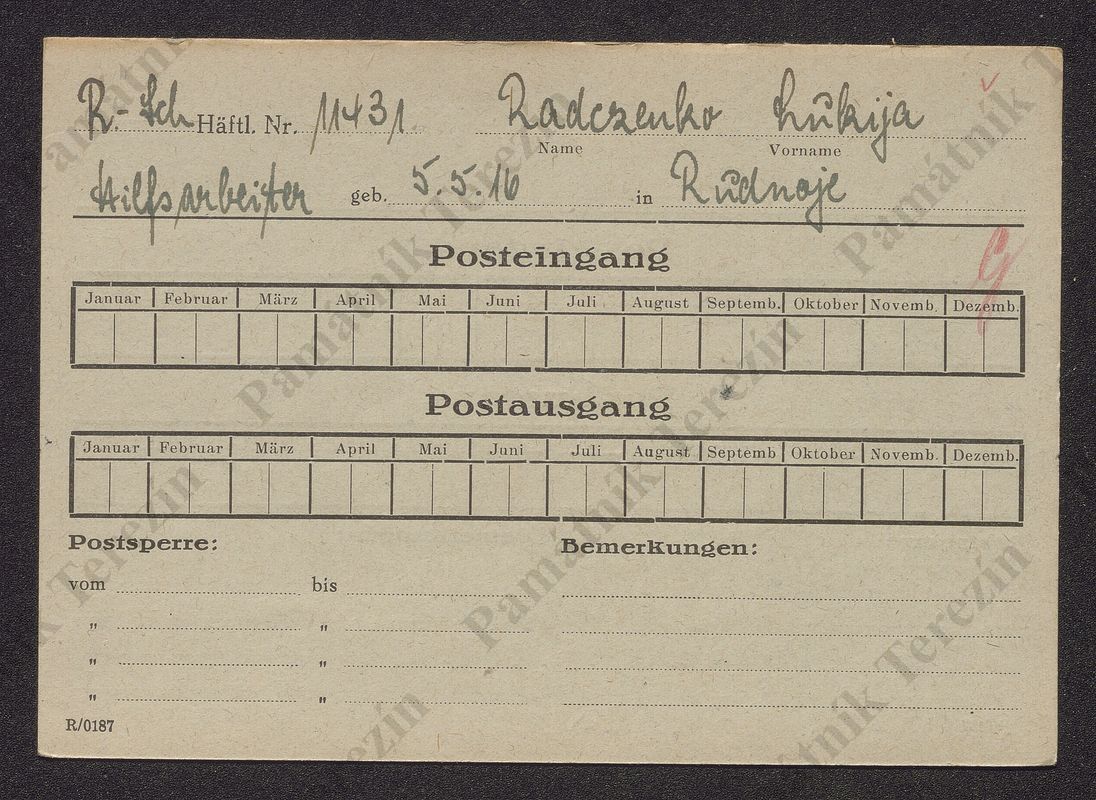 R.-Sch Häftl. Nr. 11431 Radczenko Lukija
Name Vorname
Hilfsarbeiter geb. 5.5.16 in Rudnoje
Posteingang
Januar Februar März April Mai Juni Juli August Septemb. Oktober Novemb. Dezemb.
Postausgang
Januar Februar März April Mai Juni Juli August Septemb Oktober Novemb. Dezemb.
Postsperre: Bemerkungen:
vom bis
" "
" "
" "
R/0187
Památník Terezín